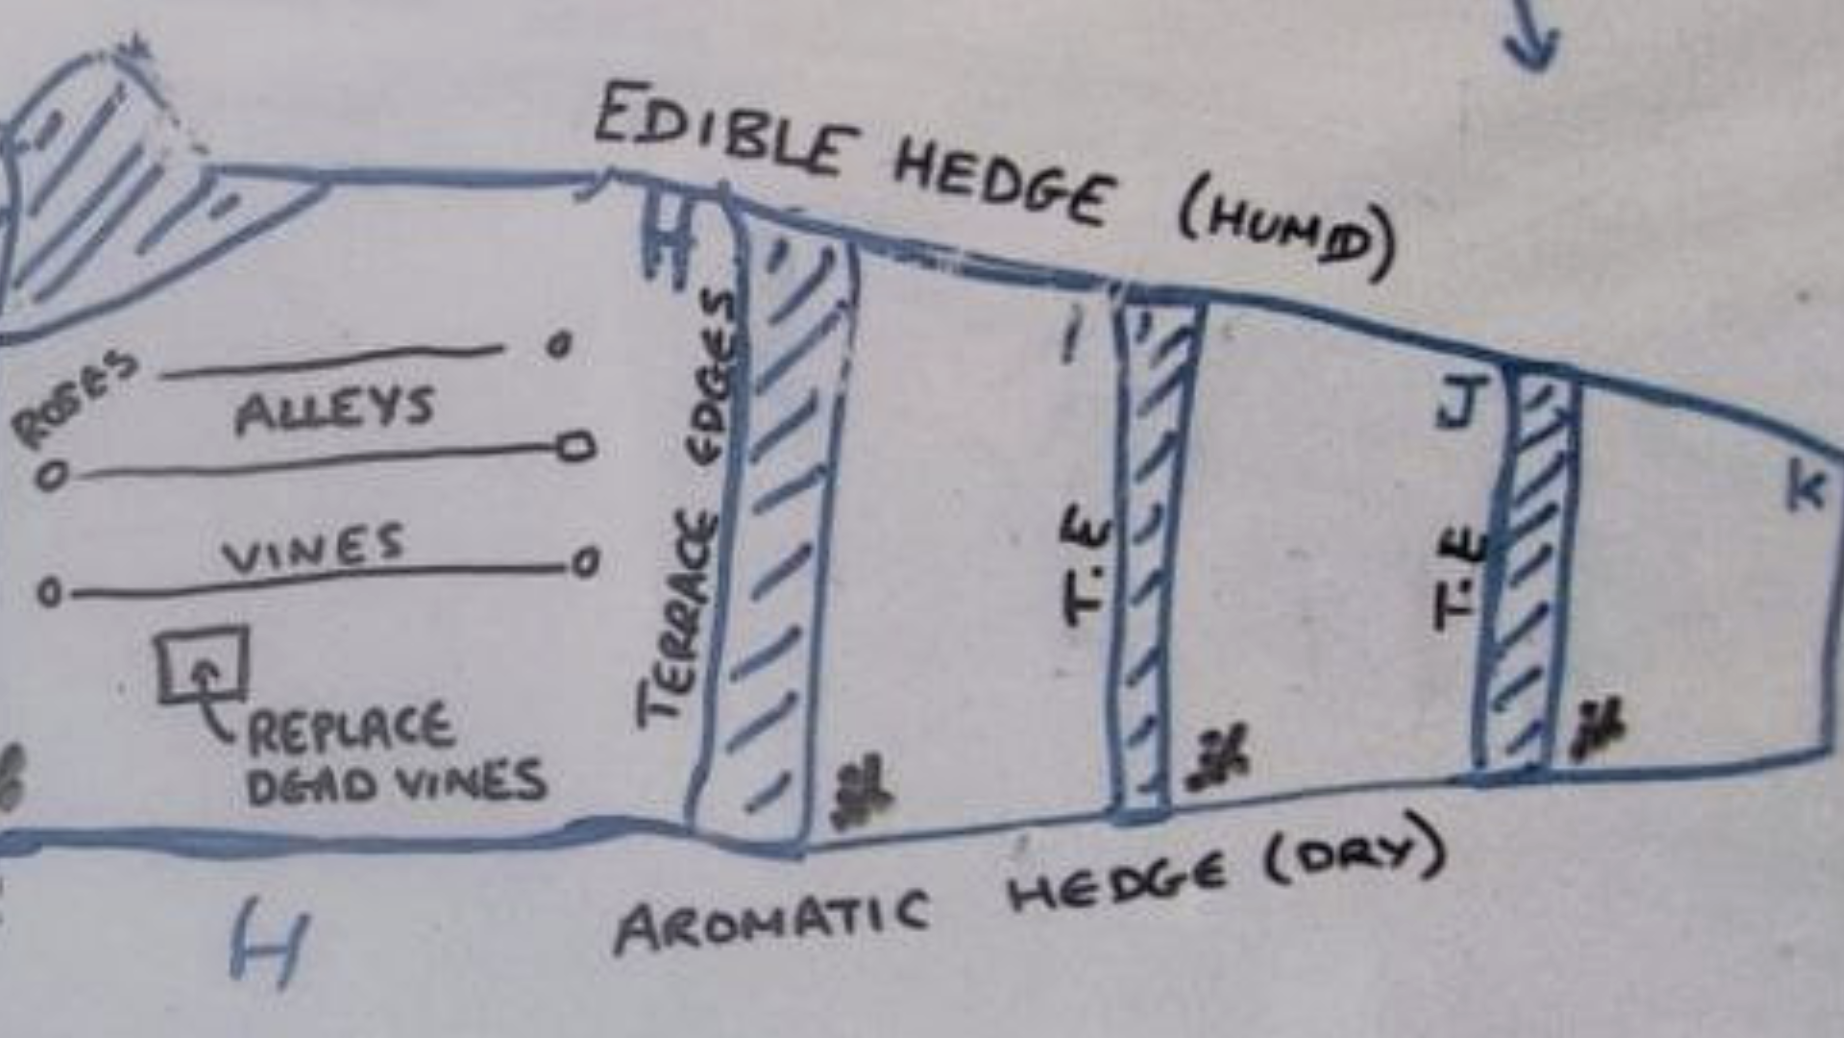 EDIBLE HEDGE (HUMID)
H
TERRACE EDGES
I
T.E
J
T.E
K
ROSES
ALLEYS
VINES
REPLACE
DEAD VINES
AROMATIC HEDGE (DRY)
H